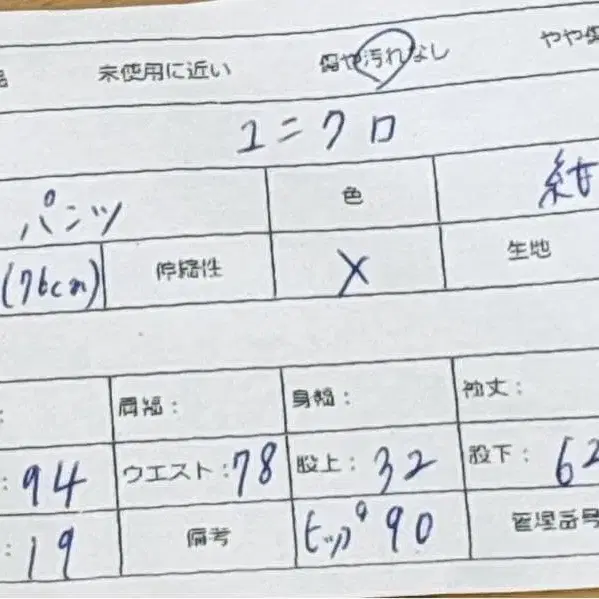 未使用に近い 傷や汚れなし やや傷
ユニクロ
パンツ 色 紺
(76cm) 伸縮性 X 生地
: 肩幅: 身幅: 袖丈:
:94 ウエスト:78 股上:32 股下:62
:19 備考 ヒップ90 管理番号